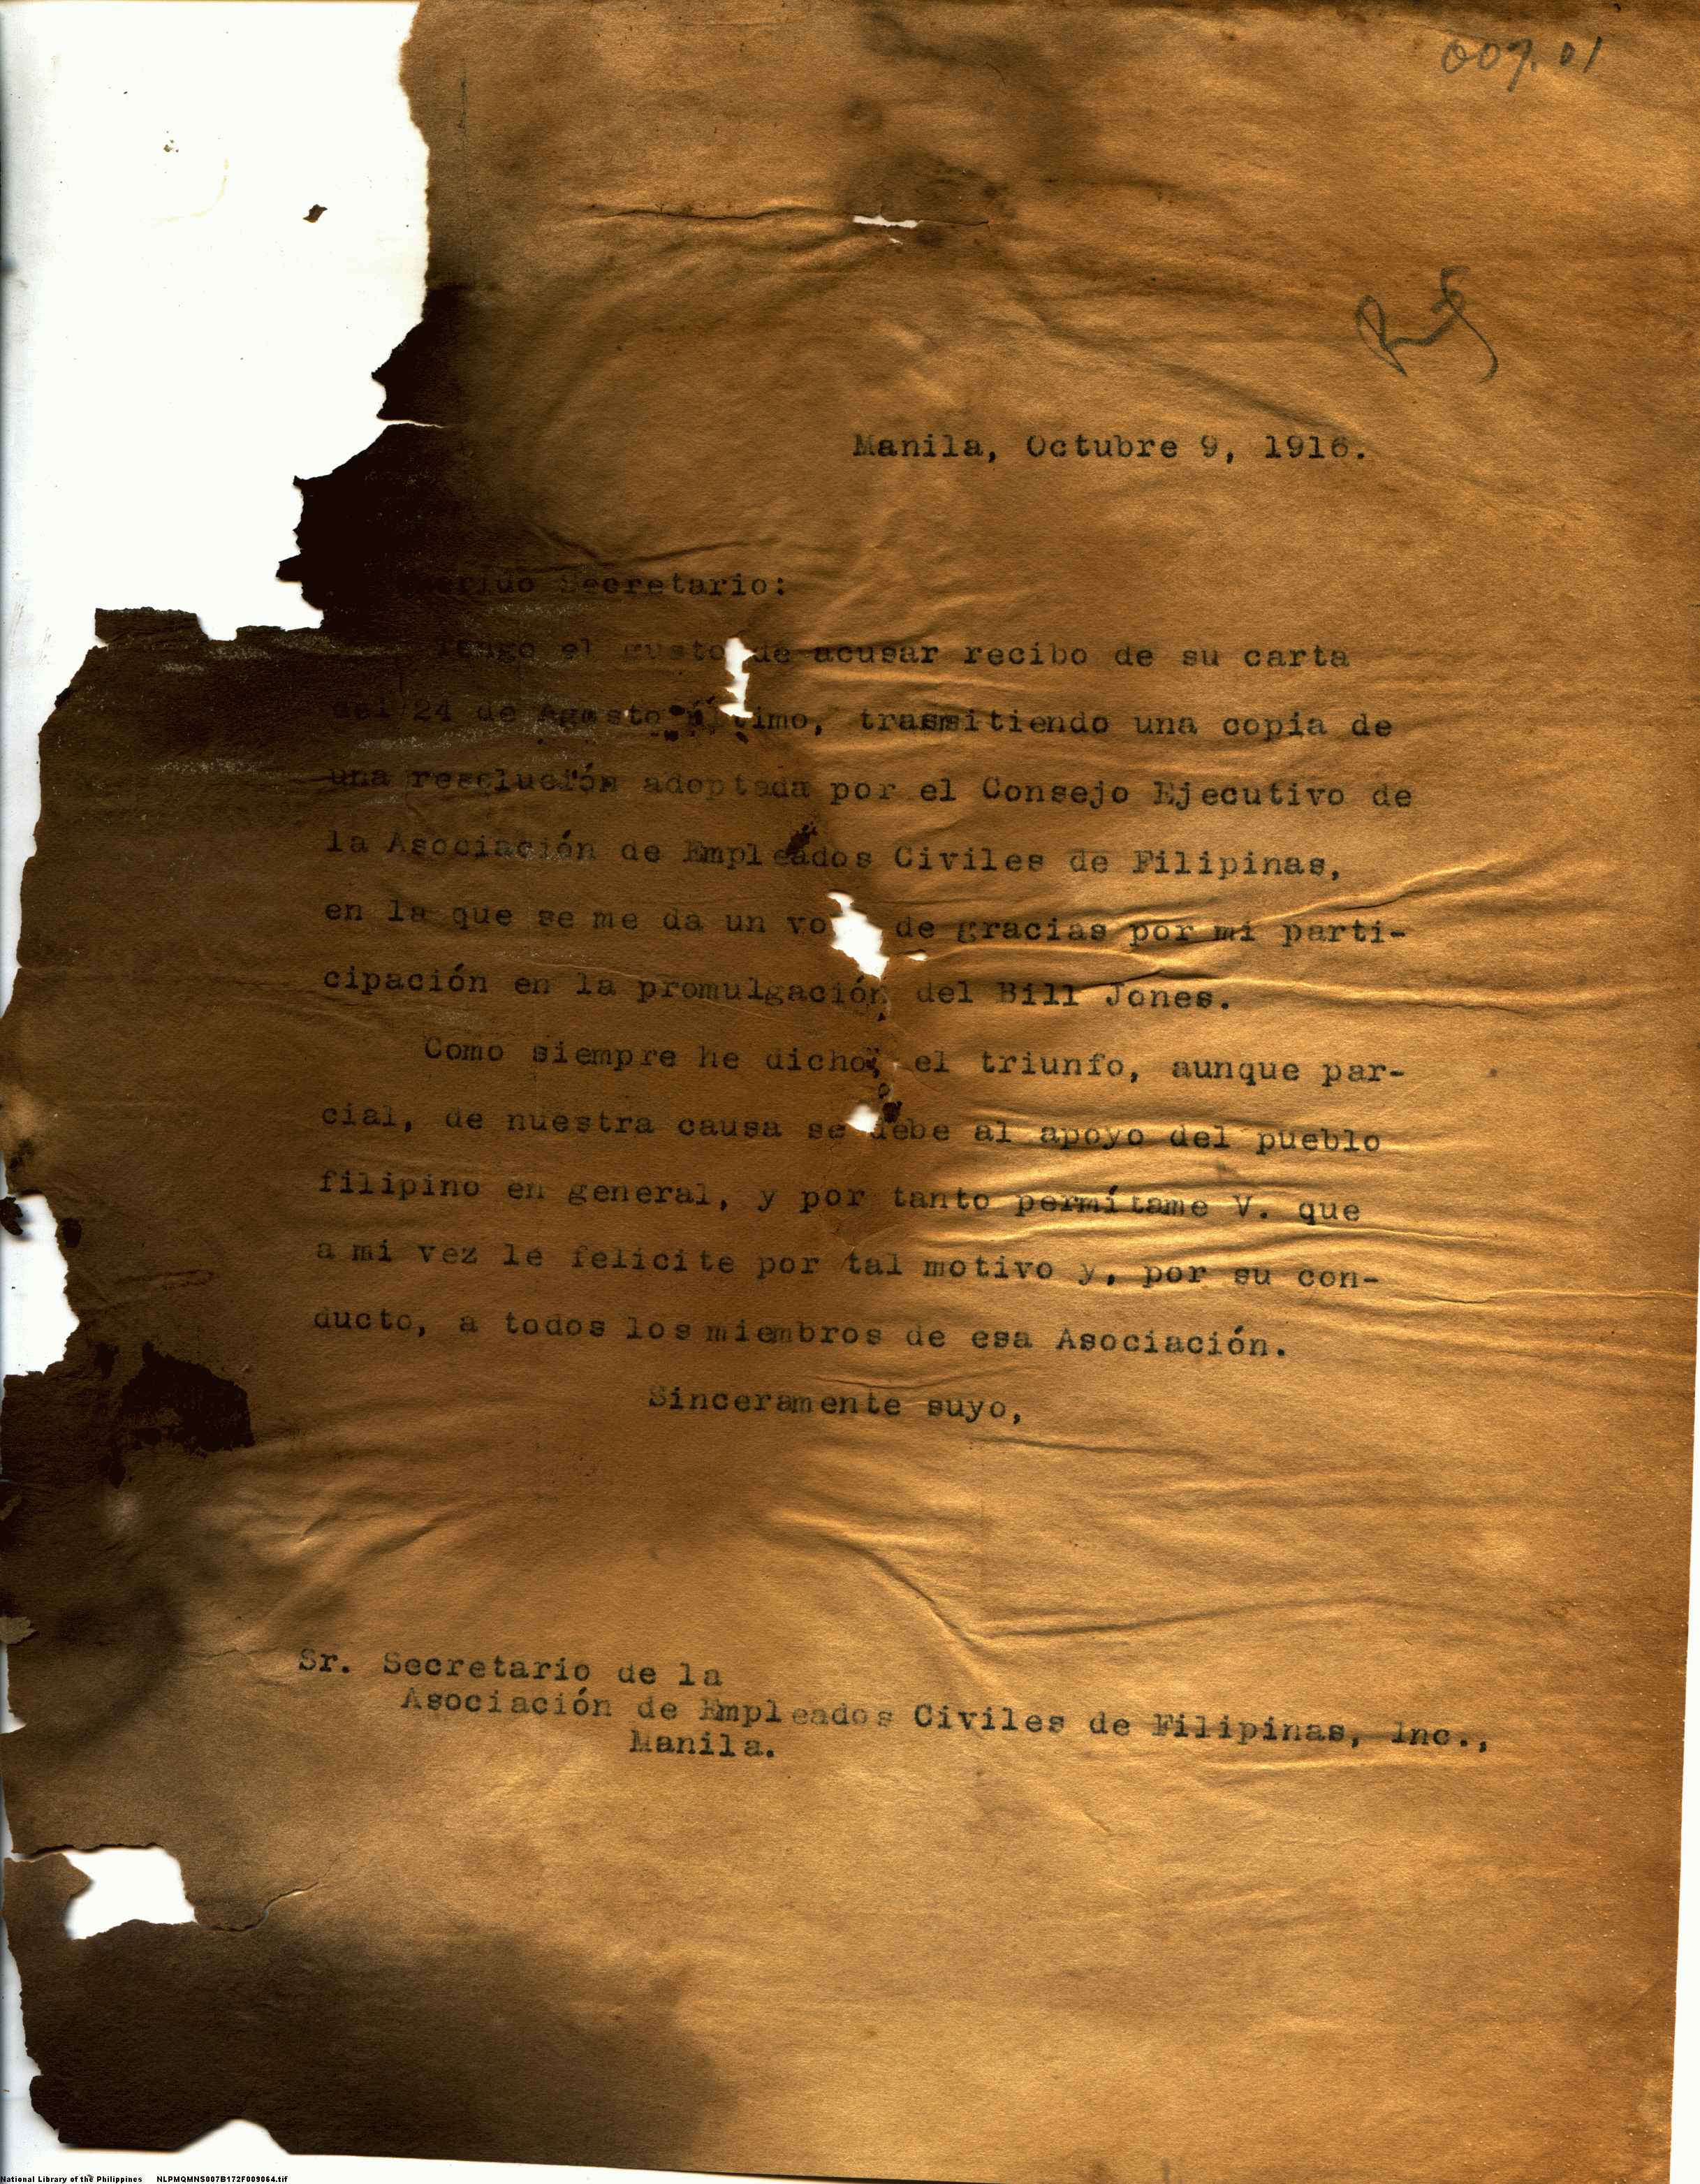 007.01
Manila, Octubre 9, 1916.
erido Secretario:
Tengo el gusto de acusar recibo de su carta
del 24 de Agosto último, trasmitiendo una copia de
una resolución adoptada por el Consejo Ejecutivo de
la Asociación de Empleados Civiles de Filipinas,
en la que se me da un vo de gracias por mi parti-
cipación en la promulgación del Bill Jones.
Como siempre he dicho, el triunfo, aunque par-
cial, de nuestra causa se debe al apoyo del pueblo
filipino en general, y por tanto permítame V. que
a mi vez le felicite por tal motivo y, por su con-
ducto, a todos los miembros de esa Asociación.
Sinceramente suyo,
Sr. Secretario de la
Asociación de Empleados Civiles de Filipinas, Inc.,
Manila.
National Library of the Philippines NLPMQMNS007B172F009064.tif